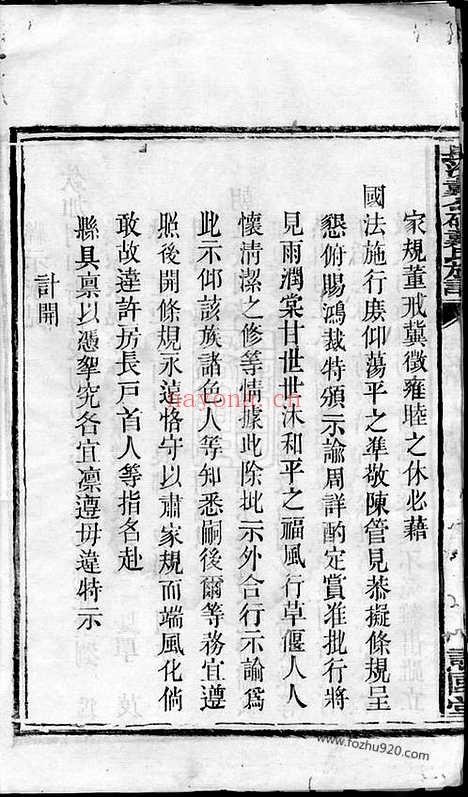 家規董戒冀徵雍睦之休必藉
國法施行庶仰蕩平之準敬陳管見恭擬條規呈
懇俯賜鴻裁特頒示諭周詳酌定賞准批行將
見雨潤棠甘世世沐和平之福風行草偃人人
懷清潔之修等情據此除批示外合行示諭爲
此示仰該族諸色人等知悉嗣後爾等務宜遵
照後開條規永遠恪守以肅家規而端風化倘
敢故違許房長戸首人等指名赴
縣具稟以憑拏究各宜凛遵毋違特示
計開
nayona.cn
www.fozhu920.com